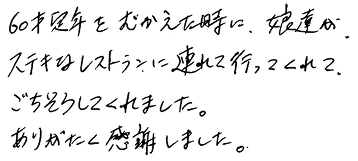 60才定年をむかえた時に、娘達が、
ステキなレストランに連れて行ってくれて、
ごちそうしてくれました。
ありがたく感謝しました。